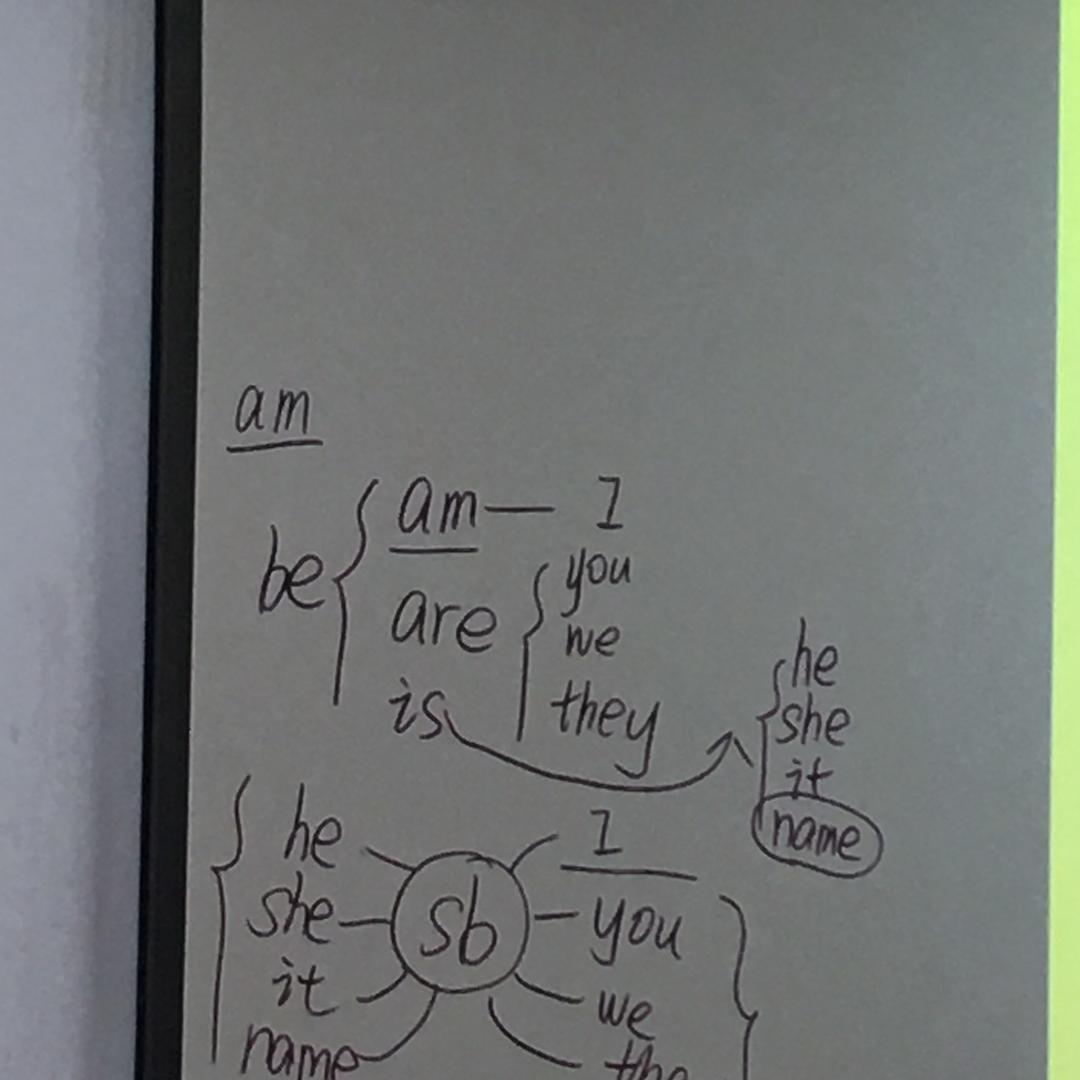 am
be { am — I
are { you
we
they
is
{ he
she
it
name
{ he
she
it
name
sb
I
you
we